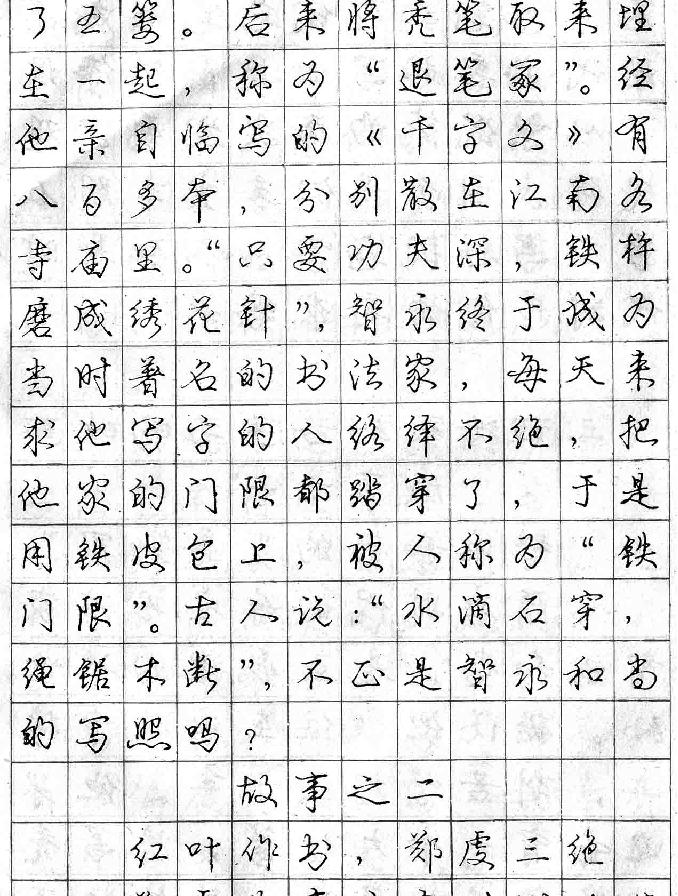 了五篓。后来将秃笔取来埋
在一起，称为“退笔冢”。经
他亲自临写的《千字文》有
八百多本，分别散在江南各
寺庙里。“只要功夫深，铁杵
磨成绣花针”，智永终于成为
当时著名的书法家，每天来
求他写字的人络绎不绝，把
他家的门限都踏穿了，于是
用铁皮包上，被人称为“铁
门限”。古人说：“水滴石穿，
绳锯木断”，不正是智永和尚
的写照吗？
故事之二
红叶作书，郑虔三绝